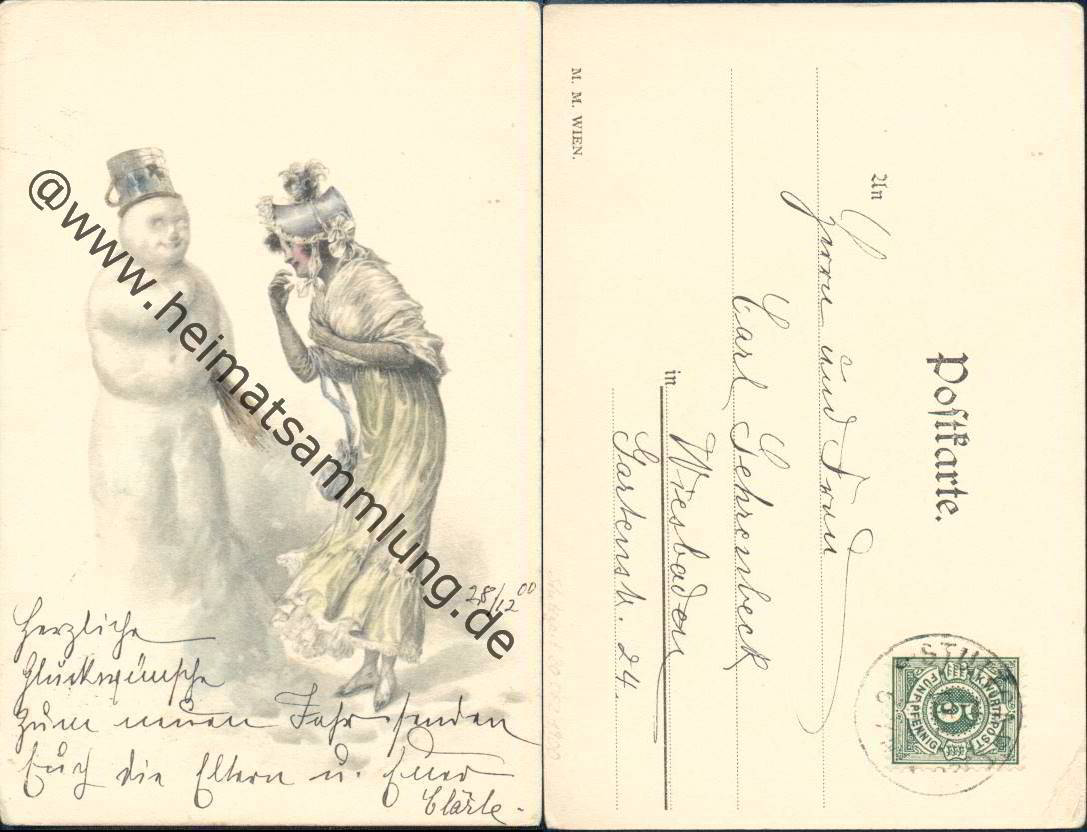 @www.heimatsammlung.de
28/12 00
Herzliche
Glückwünsche
zum neuen Jahr senden
Euch die Eltern u. Euer
Clärle.
M. M. WIEN.
Postkarte.
An
Herrn und Frau
Carl Gehrenbeck
in
Wiesbaden
Gartenstr. 24.
STUTTG
K. WÜRTT. POST
FÜNF PFENNIG
5